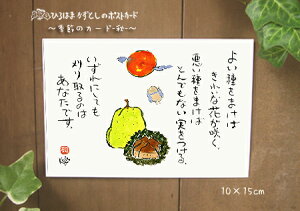 ひろはまかずとしのポストカード
~季節のカード・秋~
よい種をまけば
きれいな花が咲く、
悪い種をまけば
とんでもない実をつける。
いずれにしても
刈り取るのは
あなたです。
10×15cm